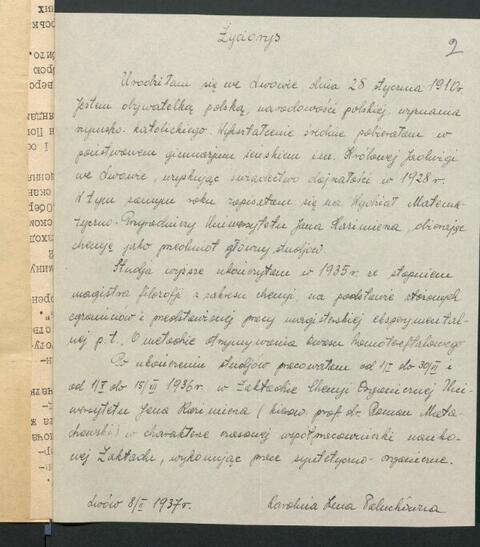 2
Życiorys
Urodziłam się we Lwowie, dnia 28 stycznia 1910r.
Jestem obywatelką polską, narodowości polskiej, wyznania
rzymsko-katolickiego. Wykształcenie średnie pobierałam w
państwowem gimnazjum żeńskiem im. Królowej Jadwigi
we Lwowie, uzyskując świadectwo dojrzałości w 1928 r.
W tym samym roku zapisałam się na Wydział Matema-
tyczno-Przyrodniczy Uniwersytetu Jana Kazimierza, obierając
chemję jako przedmiot główny studjów.
Studja wyższe ukończyłam w 1935r. ze stopniem
magistra filozofji z zakresu chemji, na podstawie złożonych
egzaminów i przedstawionej pracy magisterskiej eksperymental-
nej p.t. O metodzie otrzymywania kwasu homoteeftalowego
Po ukończeniu studjów pracowałam od 1/I do 30/VI i
od 1/X do 15/XII 1936r. w Zakładzie Chemji Organicznej Uni-
wersytetu Jana Kazimierza (kierow. prof. dr. Roman Mała-
chowski) w charakterze czasowej współpracowniczki nauko-
wej Zakładu, wykonując prace syntetyczno-organiczne.
Lwów 8/II 1937r.
Karolina Lena Paluchówna